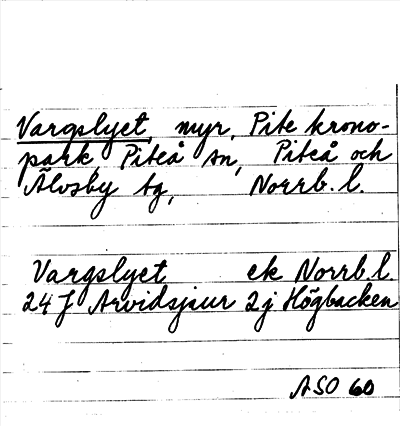 Vargslyet, myr, Pite krono-
park Piteå sn, Piteå och
Älvsby tg, Norrb. l.
Vargslyet ek Norrb. l.
24 J Arvidsjaur 2 j Högbacken
ASO 60